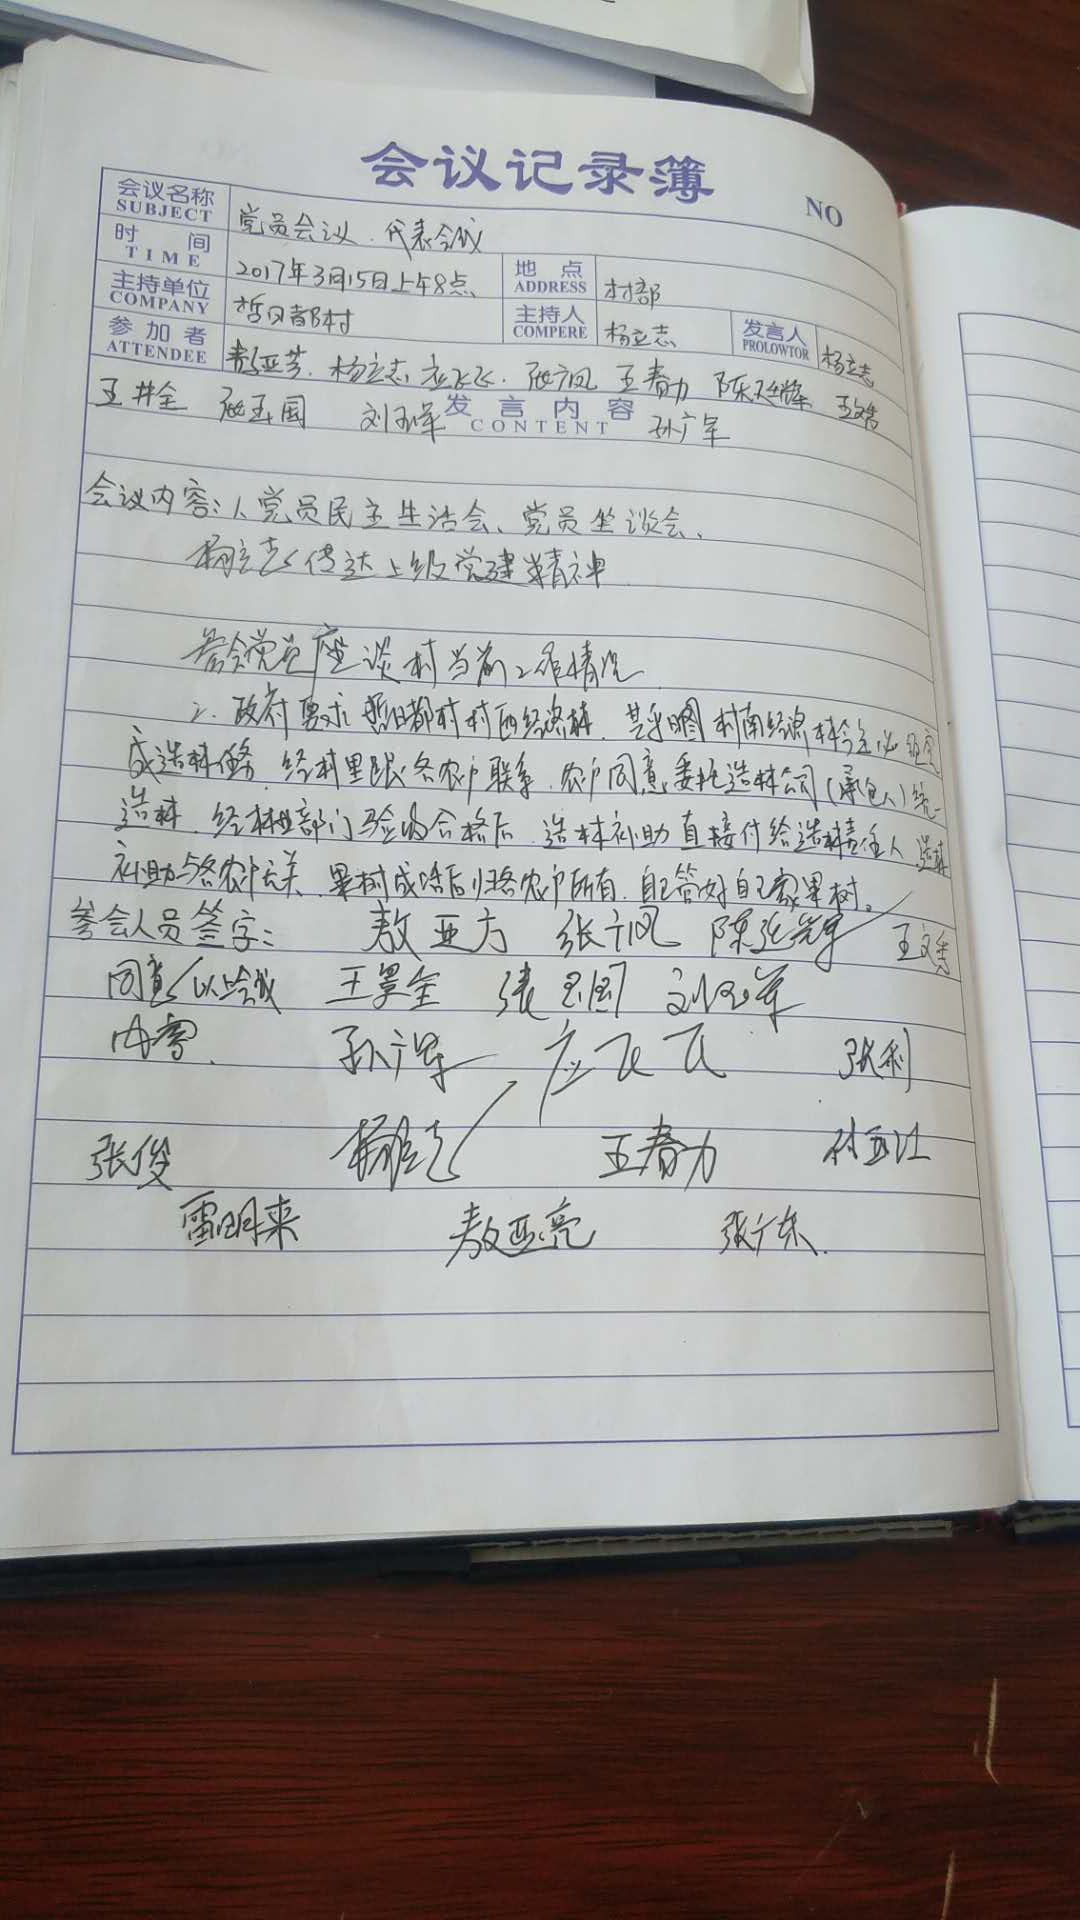 会议记录簿
NO
会议名称 党员会议、代表会议
SUBJECT
时间 2017年3月15日上午8点 地点 村部
TIME ADDRESS
主持单位 哲日都村 主持人 杨立志 发言人 杨立志
COMPANY COMPERE PROLOWTOR
参加者 敖亚芳、杨立志 应飞飞、张广凤 王春力 陈延辉 王文秀
ATTENDEE
王井全 张玉国 刘玉军 发言内容 孙广军
CONTENT
会议内容：1、党员民主生活会、党员坐谈会、
杨立志传达上级党建精神
参会党员座谈村当前工作情况
2、政府要求 哲日都村村西经济林、 村南经济林今年必须完
成造林任务 经村里跟各农户联系、农户同意委托造林公司(承包人)统一
造林、经林业部门验收合格后、造林补助直接付给造林责任人 造林
补助与各农户无关、果树成活后归各农户所有、自己管好自己家果树。
参会人员签字： 敖亚方 张广凤 陈延辉 王文秀
同意以上会议 王景全 张玉国 刘玉军
内容、 孙广军 应飞飞 张利
张俊 杨立志 王春力
雷明来 敖亚亮 张广东.